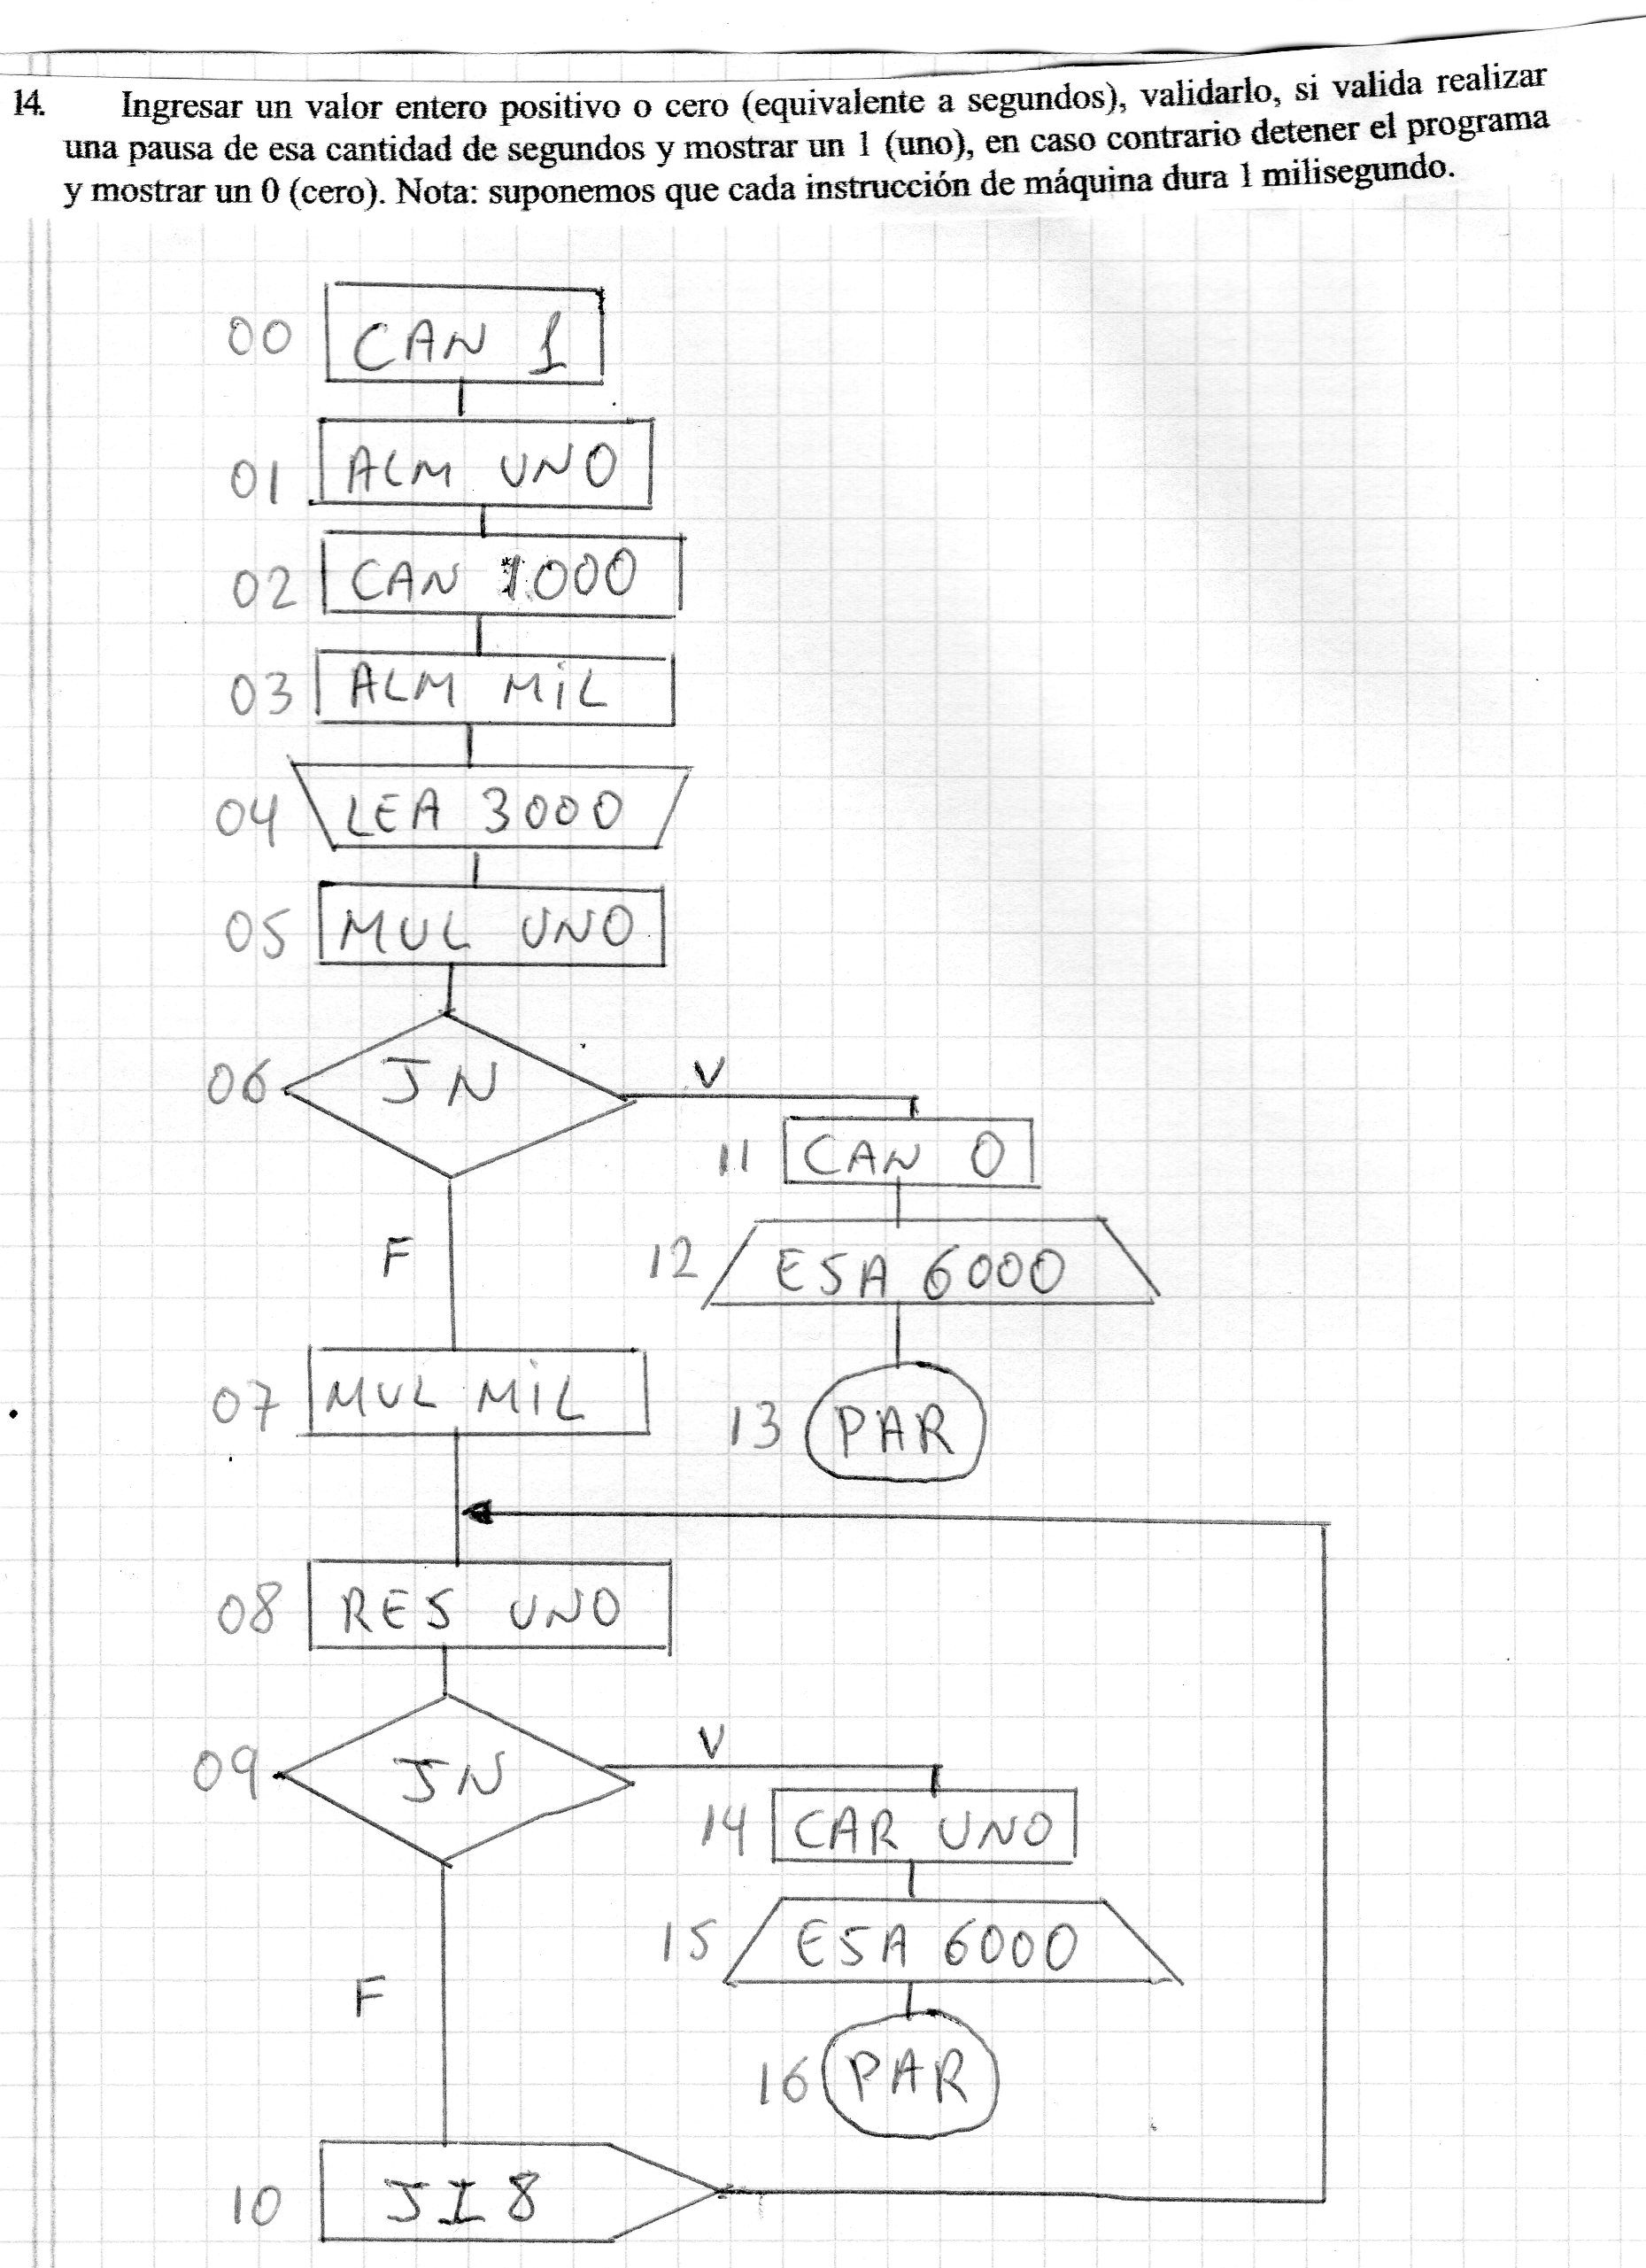 14. Ingresar un valor entero positivo o cero (equivalente a segundos), validarlo, si valida realizar
una pausa de esa cantidad de segundos y mostrar un 1 (uno), en caso contrario detener el programa
y mostrar un 0 (cero). Nota: suponemos que cada instrucción de máquina dura 1 milisegundo.
00 CAN 1
01 ALM UNO
02 CAN 1000
03 ALM MiL
04 LEA 3000
05 MUL UNO
06 JN V
11 CAN 0
F
12 ESA 6000
07 MUL MiL
13 PAR
08 RES UNO
09 JN V
14 CAR UNO
15 ESA 6000
F
16 PAR
10 JI 8